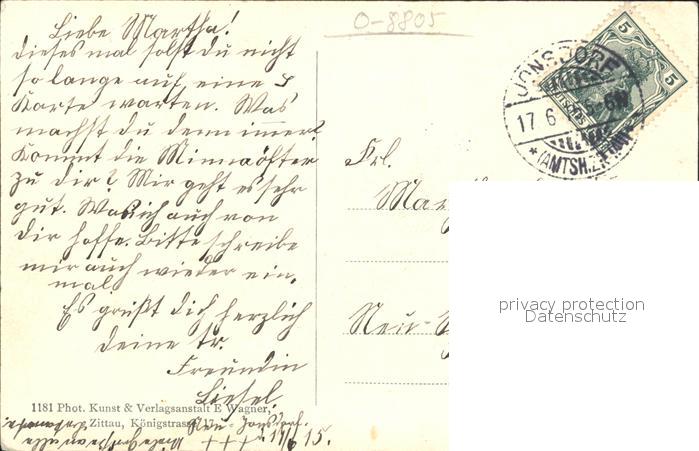 O-8805
Liebe Martha!
dieses mal solst du nicht
so lange auf eine
Karte warten. Was
machst du denn immer?
Kommt die Minna öfter
zu dir? Mir geht es sehr
gut. Was ich auch von
dir hoffe. Bitte schreibe
mir auch wieder ein,
mal
Es grüßt dich herzlich
deine tr.
Freundin
Liesel.
1181 Phot. Kunst & Verlagsanstalt E Wagner,
Zittau, Königstrasse
Neu-Jonsdorf.
Viele Grüße an alle +++ 17/6 15.
JONSDORF
17.6
5-6N
* (AMTSH.
5
5
Frl.
Neu-
privacy protection
Datenschutz